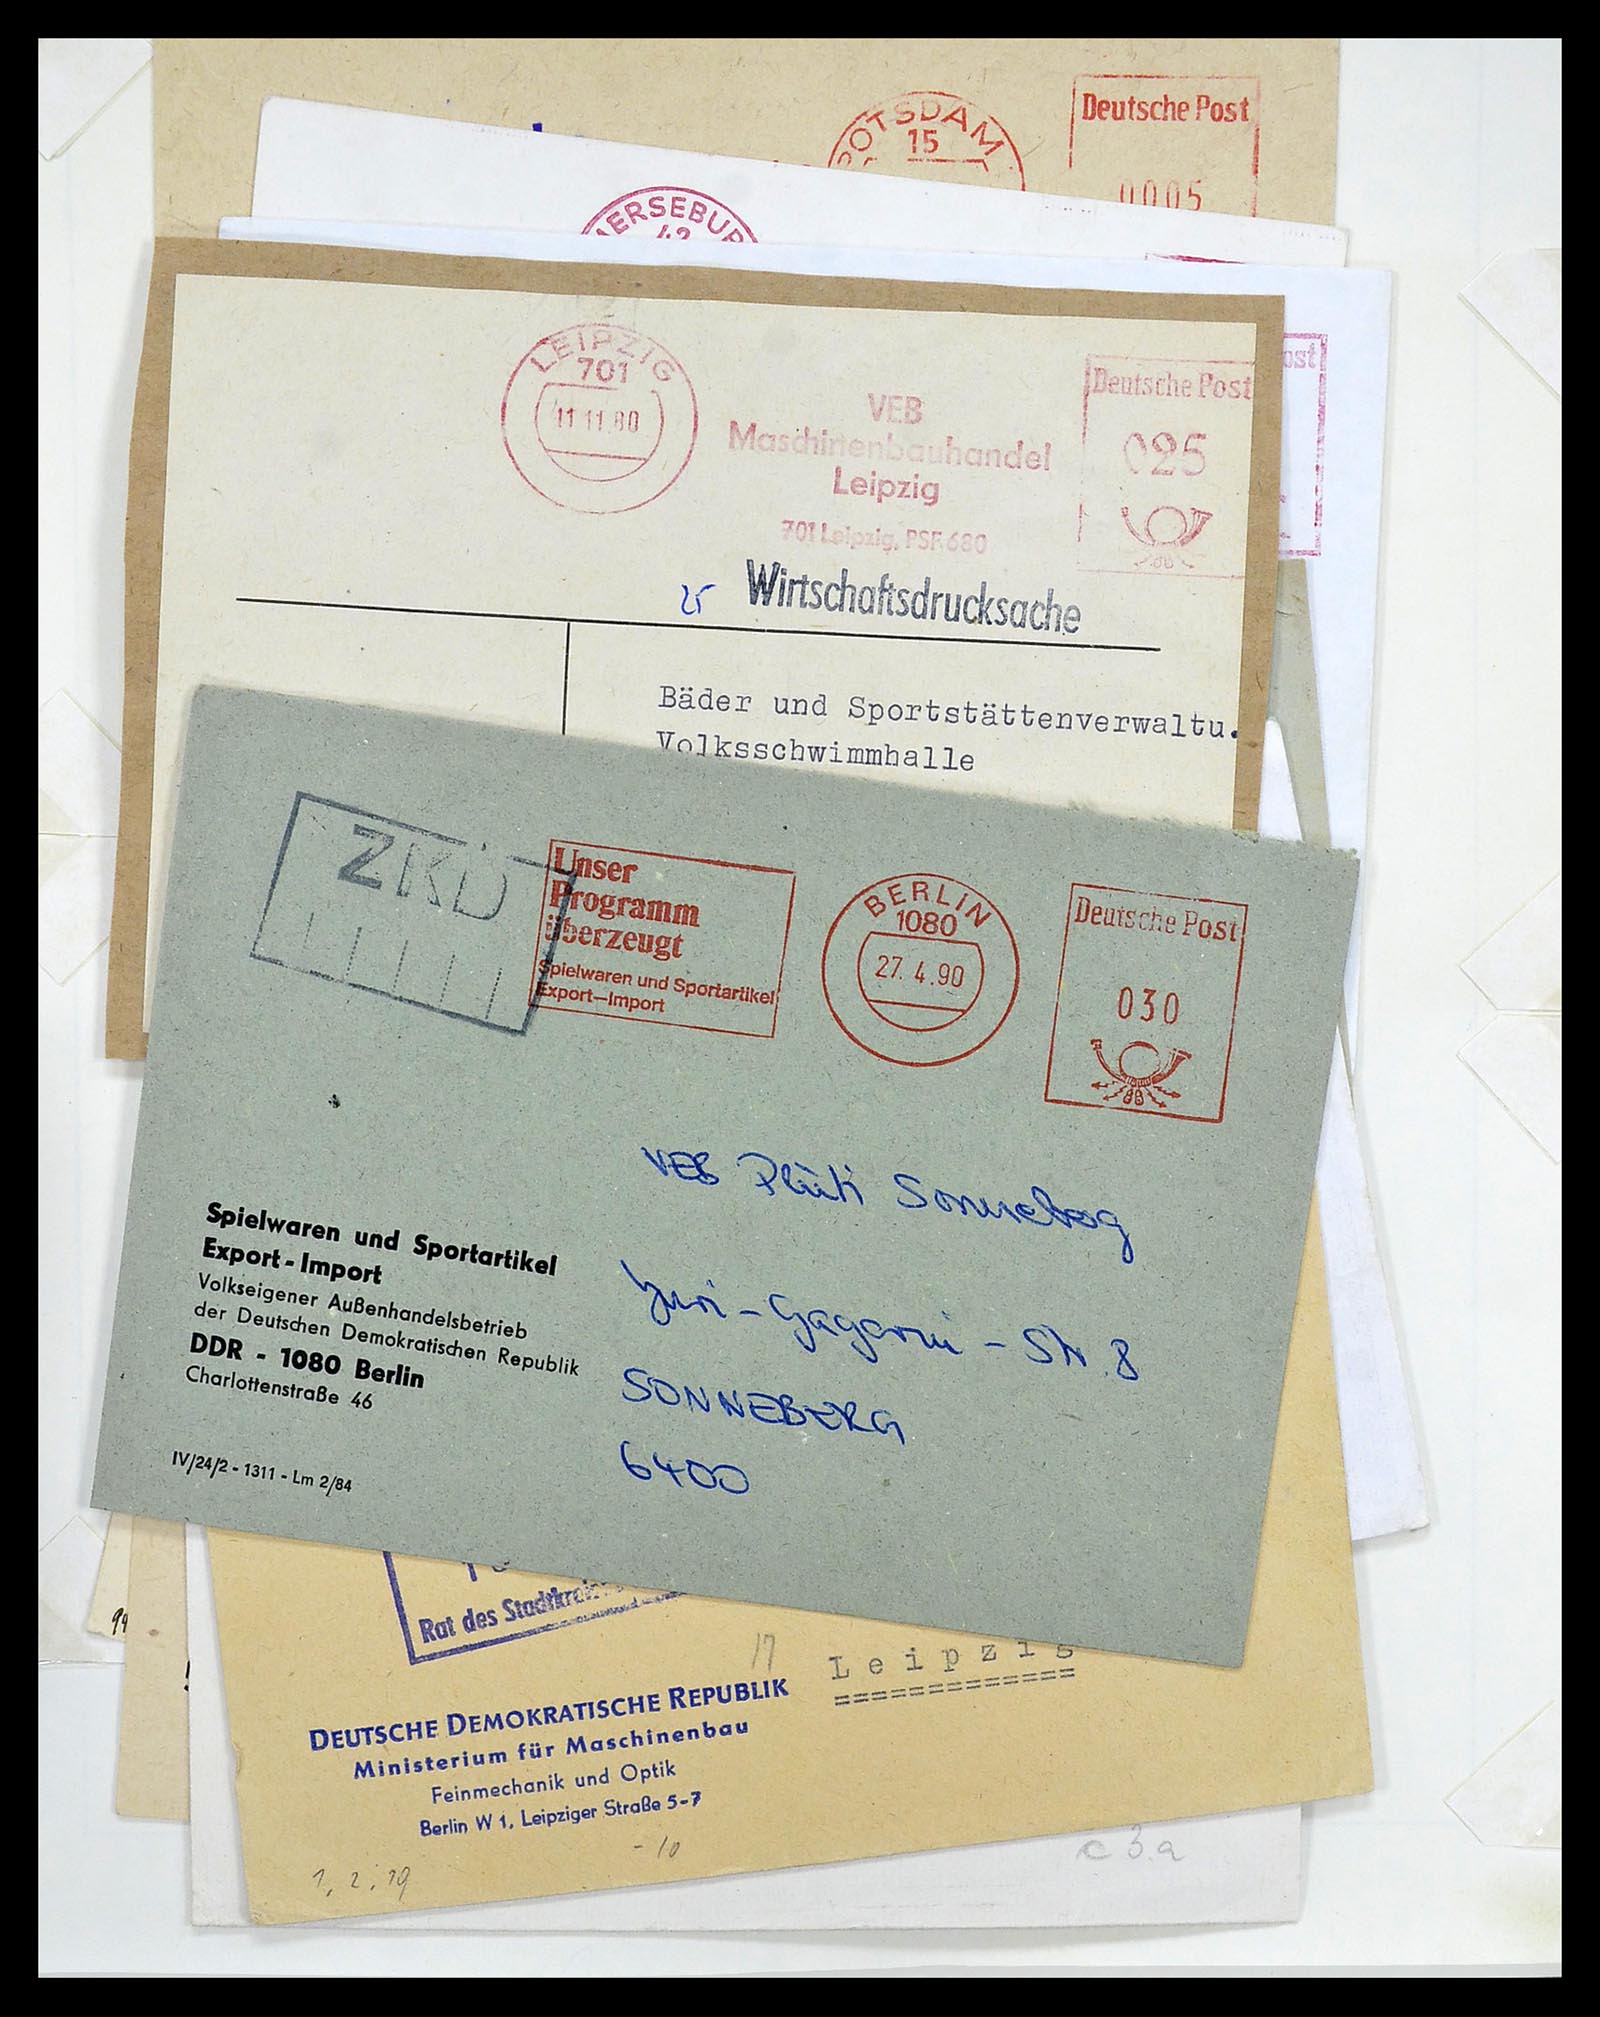 POTSDAM
15
Deutsche Post
0005
MERSEBUR
42
ost
LEIPZIG
701
11.11.80
VEB
Maschinenbauhandel
Leipzig
701 Leipzig, PSF 680
Deutsche Post
025
25
Wirtschaftsdrucksache
Bäder und Sportstättenverwaltu.
Volksschwimmhalle
ZKD
Unser
Programm
überzeugt
Spielwaren und Sportartikel
Export-Import
BERLIN
1080
27. 4.90
Deutsche Post
030
VEB Plüti Sonneberg
Juri-Gagarin-Str. 8
SONNEBERG
6400
Spielwaren und Sportartikel
Export-Import
Volkseigener Außenhandelsbetrieb
der Deutschen Demokratischen Republik
DDR - 1080 Berlin
Charlottenstraße 46
IV/24/2 - 1311 - Lm 2/84
Rat des
17
Leipzig
DEUTSCHE DEMOKRATISCHE REPUBLIK
Ministerium für Maschinenbau
Feinmechanik und Optik
Berlin W 1, Leipziger Straße 5-7
- 10
c 3.a